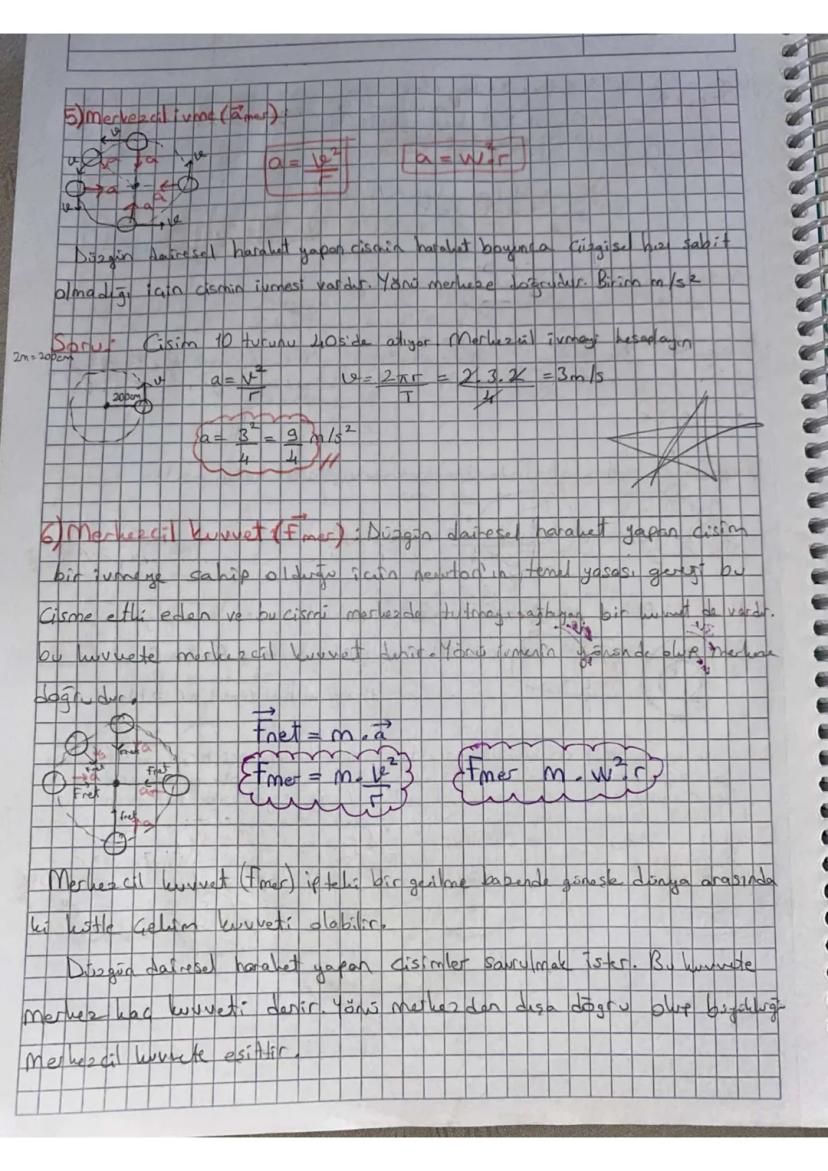 5) Merkezcil ivme (a⃗mer):
a = v²/r
a = w².r
Düzgün dairesel haraket yapan cismin haraket boyunca Çizgisel hızı sabit
olmadığı için cismin ivmesi vardır. Yönü merkeze doğrudur. Birim m/s²
Soru: Cisim 10 turunu 40s'de atıyor Merkezcil ivmeyi hesaplayın
2m = 200cm
200cm
a = v²/r v = 2πr/T = 2.3.2/4 = 3m/s
a = 3²/4 = 9/4 m/s²
6) Merkezcil kuvvet (F⃗mer): Düzgün dairesel haraket yapan cisim
bir ivmeye sahip olduğu için newton'ın temel yasası gereği bu
Cisme etki eden ve bu cismi merkezde tutmayı sağlayan bir kuvvet de vardır.
bu kuvvete merkezcil kuvvet denir. Yönü ivmenin yönünde olup merkeze
doğrudur.
F⃗net = m.a⃗
Fmer = m.v²/r
Fmer m.w².r
Fnet a
Merkezcil kuvvet (Fmer) ipteki bir gerilme bazende güneşle dünya arasında
ki kütle Çekim kuvveti olabilir.
Düzgün dairesel haraket yapan cisimler savrulmak ister. Bu kuvvete
merkez kaç kuvveti denir. Yönü merkezden dışa doğru olup büyüklüğü
merkezcil kuvvete eşittir.